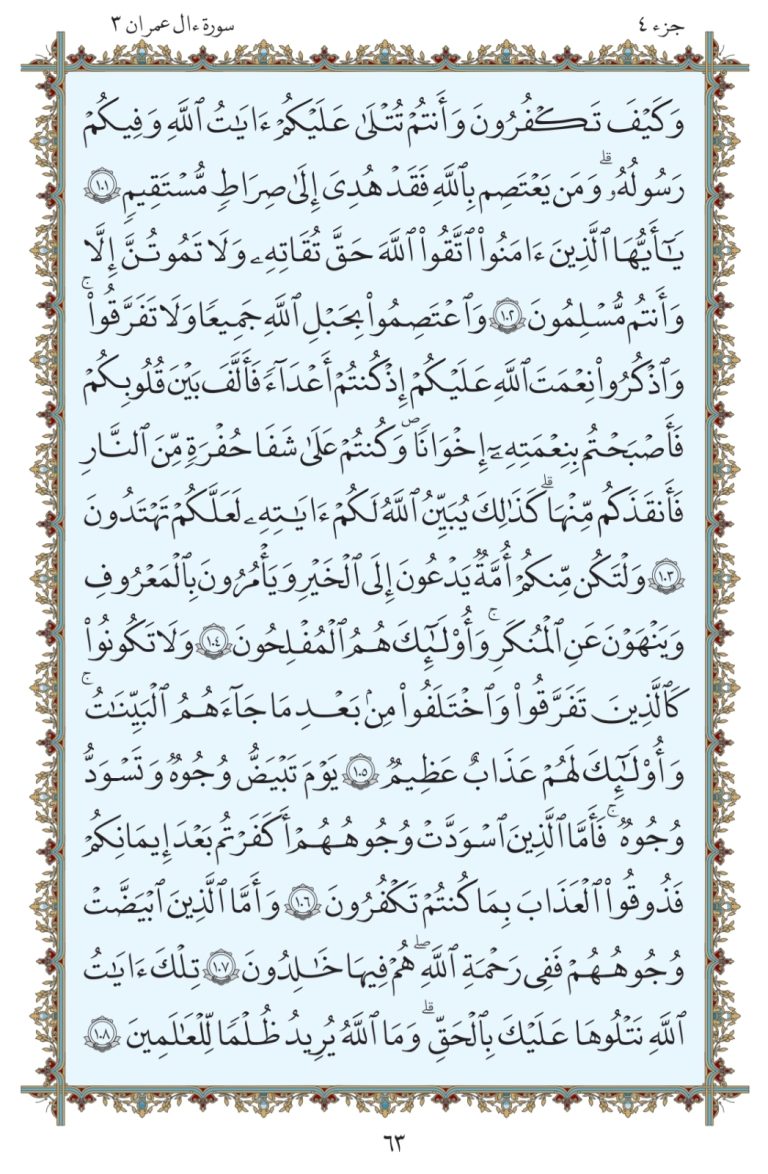 جزء ٤
سورة ءال عمران ٣
وَكَيۡفَ تَكۡفُرُونَ وَأَنتُمۡ تُتۡلَىٰ عَلَيۡكُمۡ ءَايَٰتُ ٱللَّهِ وَفِيكُمۡ
رَسُولُهُۥۗ وَمَن يَعۡتَصِم بِٱللَّهِ فَقَدۡ هُدِيَ إِلَىٰ صِرَٰطٖ مُّسۡتَقِيمٖ ١٠١
يَٰٓأَيُّهَا ٱلَّذِينَ ءَامَنُواْ ٱتَّقُواْ ٱللَّهَ حَقَّ تُقَاتِهِۦ وَلَا تَمُوتُنَّ إِلَّا
وَأَنتُم مُّسۡلِمُونَ ١٠٢ وَٱعۡتَصِمُواْ بِحَبۡلِ ٱللَّهِ جَمِيعٗا وَلَا تَفَرَّقُواْۚ
وَٱذۡكُرُواْ نِعۡمَتَ ٱللَّهِ عَلَيۡكُمۡ إِذۡ كُنتُمۡ أَعۡدَآءٗ فَأَلَّفَ بَيۡنَ قُلُوبِكُمۡ
فَأَصۡبَحۡتُم بِنِعۡمَتِهِۦٓ إِخۡوَٰنٗاۖ وَكُنتُمۡ عَلَىٰ شَفَا حُفۡرَةٖ مِّنَ ٱلنَّارِ
فَأَنقَذَكُم مِّنۡهَاۗ كَذَٰلِكَ يُبَيِّنُ ٱللَّهُ لَكُمۡ ءَايَٰتِهِۦ لَعَلَّكُمۡ تَهۡتَدُونَ
١٠٣ وَلۡتَكُن مِّنكُمۡ أُمَّةٞ يَدۡعُونَ إِلَى ٱلۡخَيۡرِ وَيَأۡمُرُونَ بِٱلۡمَعۡرُوفِ
وَيَنۡهَوۡنَ عَنِ ٱلۡمُنكَرِۚ وَأُوْلَٰٓئِكَ هُمُ ٱلۡمُفۡلِحُونَ ١٠٤ وَلَا تَكُونُواْ
كَٱلَّذِينَ تَفَرَّقُواْ وَٱخۡتَلَفُواْ مِنۢ بَعۡدِ مَا جَآءَهُمُ ٱلۡبَيِّنَٰتُۚ
وَأُوْلَٰٓئِكَ لَهُمۡ عَذَابٌ عَظِيمٞ ١٠٥ يَوۡمَ تَبۡيَضُّ وُجُوهٞ وَتَسۡوَدُّ
وُجُوهٞۚ فَأَمَّا ٱلَّذِينَ ٱسۡوَدَّتۡ وُجُوهُهُمۡ أَكَفَرۡتُم بَعۡدَ إِيمَٰنِكُمۡ
فَذُوقُواْ ٱلۡعَذَابَ بِمَا كُنتُمۡ تَكۡفُرُونَ ١٠٦ وَأَمَّا ٱلَّذِينَ ٱبۡيَضَّتۡ
وُجُوهُهُمۡ فَفِي رَحۡمَةِ ٱللَّهِۖ هُمۡ فِيهَا خَٰلِدُونَ ١٠٧ تِلۡكَ ءَايَٰتُ
ٱللَّهِ نَتۡلُوهَا عَلَيۡكَ بِٱلۡحَقِّۗ وَمَا ٱللَّهُ يُرِيدُ ظُلۡمٗا لِّلۡعَٰلَمِينَ ١٠٨
٦٣